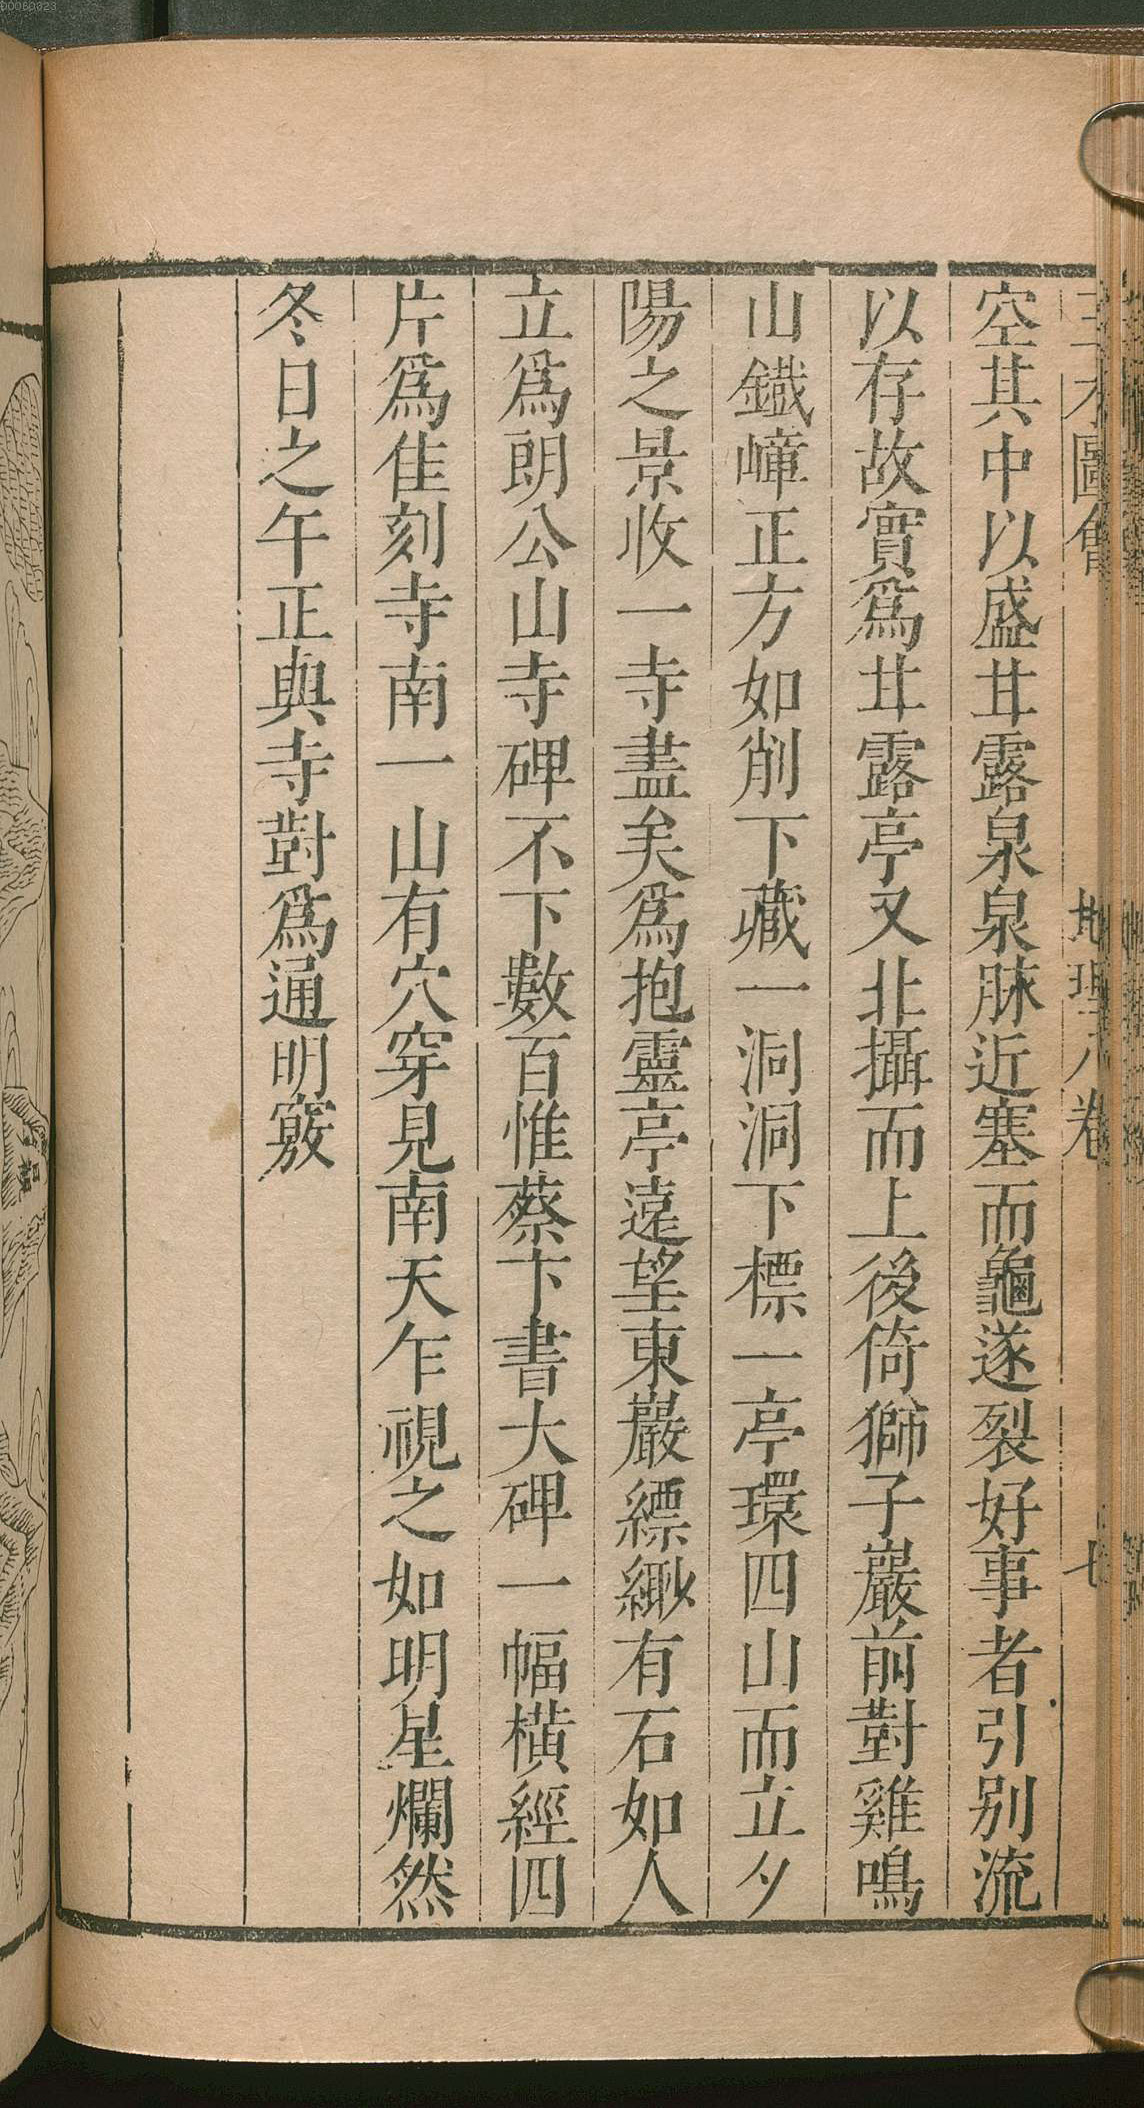 00060323
三才圖會 地理八卷 七
空其中以盛甘露泉泉脉近塞而龜遂裂好事者引别流
以存故實爲甘露亭又北攝而上後倚獅子巖前對雞鳴
山鐵嶂正方如削下藏一洞洞下標一亭環四山而立夕
陽之景收一寺盡矣爲抱靈亭遠望東巖縹緲有石如人
立爲朗公山寺碑不下數百惟蔡卞書大碑一幅橫經四
片爲佳刻寺南一山有穴穿見南天乍視之如明星爛然
冬日之午正與寺對爲通明竅